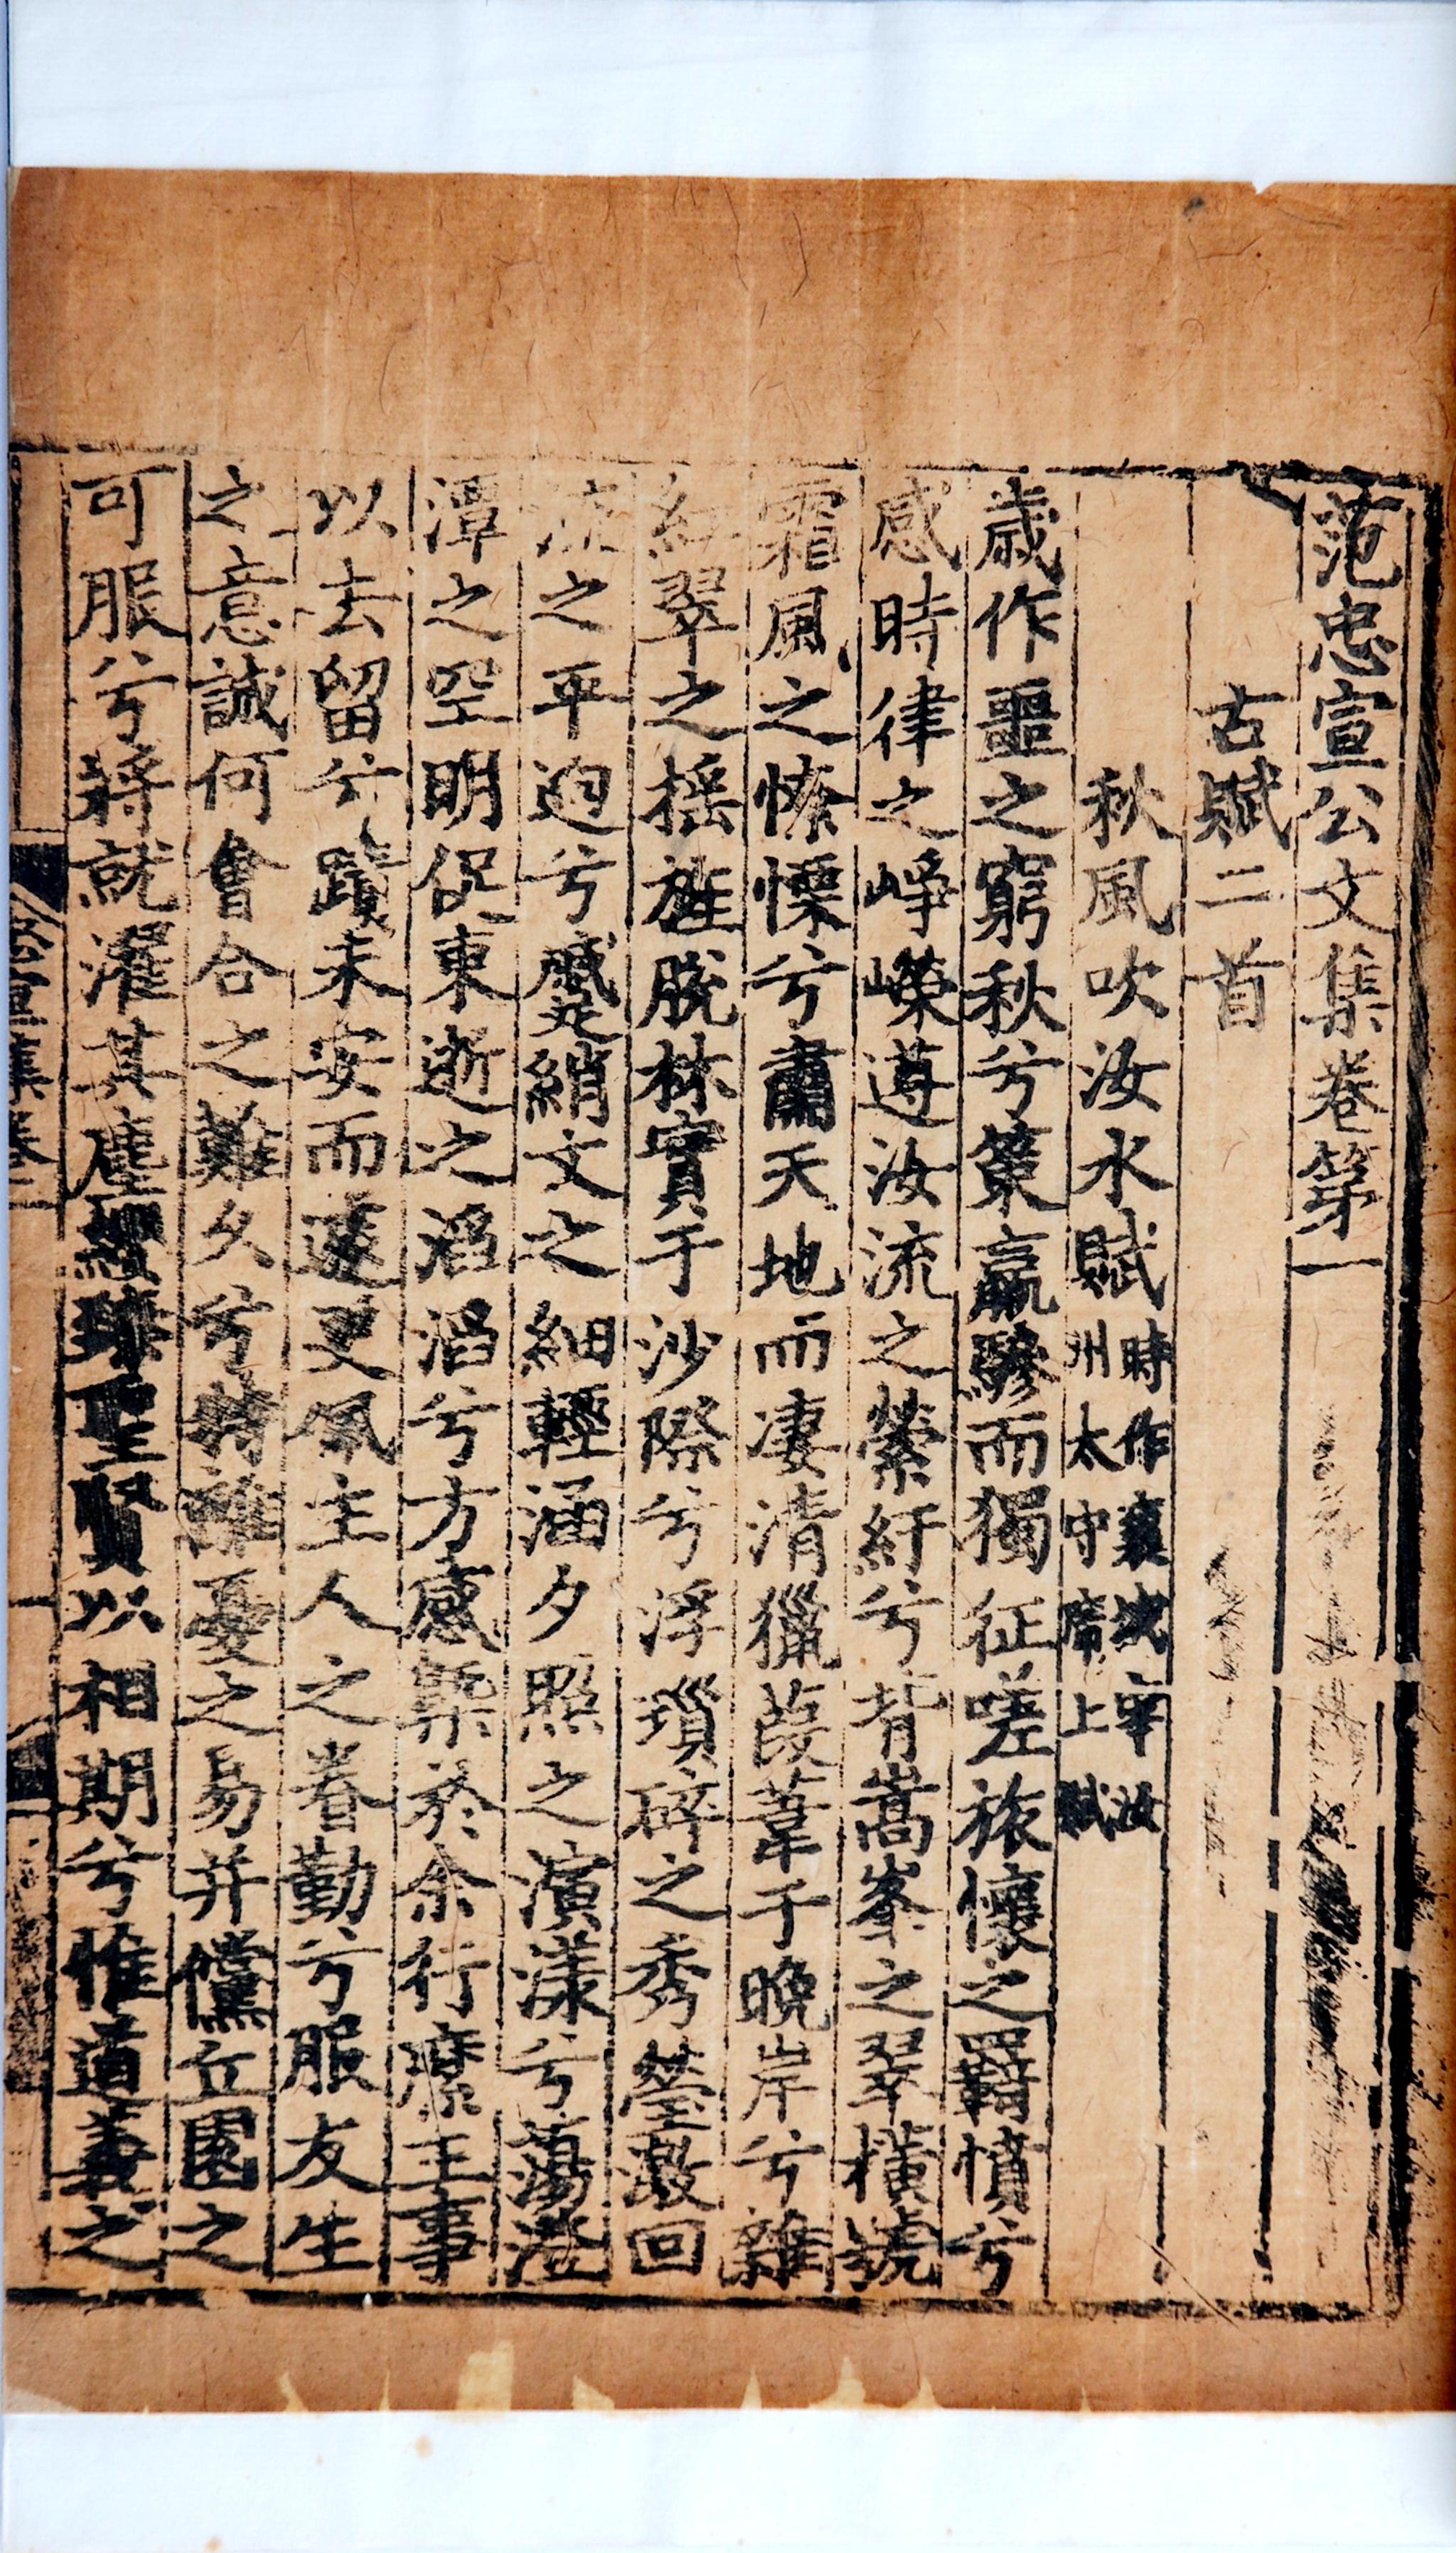 范忠宣公文集卷第一
古賦二首
秋風吹汝水賦時作襄城宰汝州太守席上賦
歲作噩之窮秋兮策羸驂而獨征嗟旅懷之羇憤兮
感時律之崢嶸遵汝流之縈紆兮背嵩峯之翠橫號
霜風之憭慄兮肅天地而凄清獵葭葦于晚岸兮雜
紅翠之搖旌脫林實于沙際兮浮瑣碎之秀瑩激回
流之平迤兮蹙綃文之細輕涵夕照之演漾兮蕩澄
潭之空明促東逝之滔滔兮方感槩於余行縻王事
以去留兮蹟未安而遽更佩主人之眷勤兮服友生
之意誠何會合之難久兮離憂之易并儻丘園之
可服兮將就濯其塵纓臻聖賢以相期兮惟道義之
宣集卷一